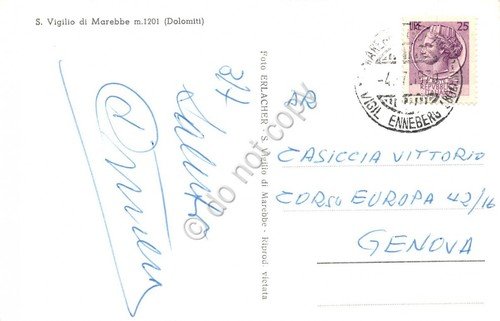 S. Vigilio di Marebbe m.1201 (Dolomiti)
LIRE 25
VIGIL ENNEBERG
Foto ERLACHER - S. Vigilio di Marebbe - Riprod vietata
Saluti
CASICCIA VITTORIO
CORSO EUROPA 42/16
GENOVA
© do not copy